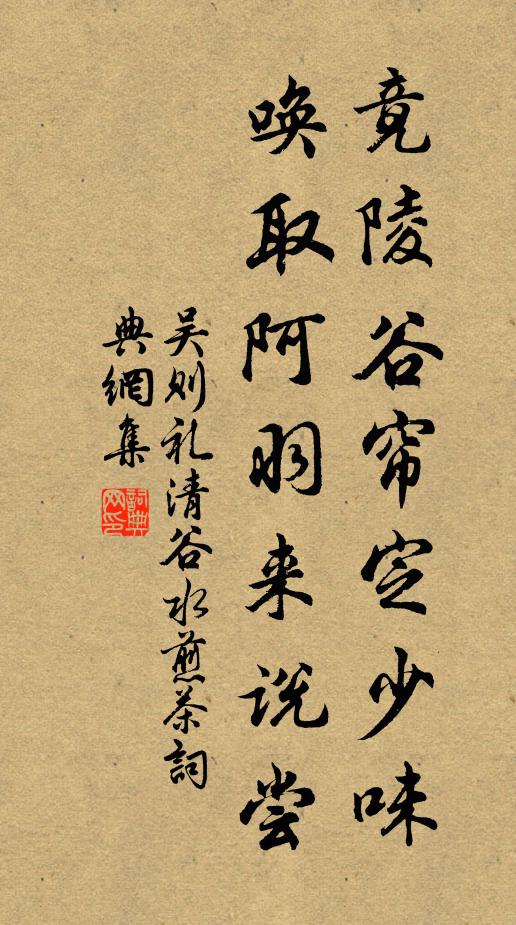 竟陵谷帘定少味
唤取阿羽来说尝
吴则礼清谷水煎茶词
典網集
詞典網印